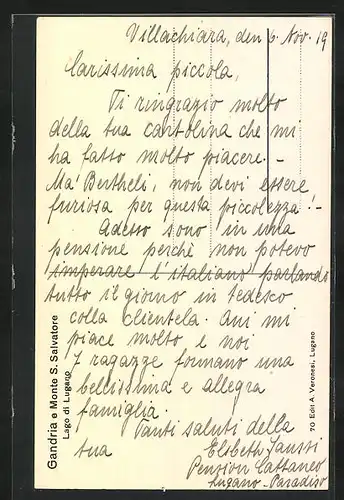 Villachiara, den 6. Nov. 19
Carissima piccola,
Ti ringrazio molto
della tua cartolina che mi
ha fatto molto piacere. –
Ma' Bertheli, non devi essere
furiosa per questa piccolezza! –
Adesso sono in una
pensione perchè non potevo
imperare l'italiano parlando
tutto il giorno in tedesco
colla clientela. Qui mi
piace molto e noi
7 ragazze formano una
bellissima e allegra
famiglia.
Tanti saluti della
tua Elsbeth
Pension Cattaneo
Lugano-Paradiso
Gandria e Monte S. Salvatore
Lago di Lugano
70 Edit A. Veronesi, Lugano